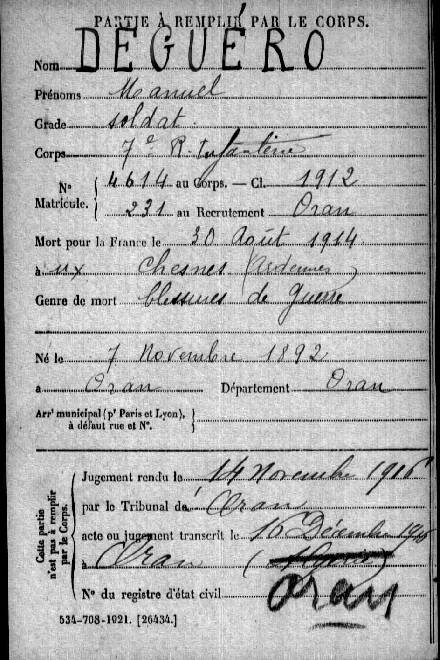 PARTIE À REMPLIR PAR LE CORPS.
Nom DEGUERO
Prénoms Manuel
Grade soldat.
Corps 7e R. Infanterie
Nº Matricule. { 4614 au Corps. — Cl. 1912
231 au Recrutement Oran
Mort pour la France le 30 Août 1914
à aux Chesnes (Ardennes)
Genre de mort blessures de guerre
Né le 7 Novembre 1892
a Oran Département Oran
Arrt municipal (pr Paris et Lyon),
à défaut rue et Nº.
Cette partie
n'est pas à remplir
par le Corps.
Jugement rendu le 14 Novembre 1916
par le Tribunal de Oran
acte ou jugement transcrit le 16 Décembre 1916
à Oran
Nº du registre d'état civil Oran
534-708-1921. [26434.]